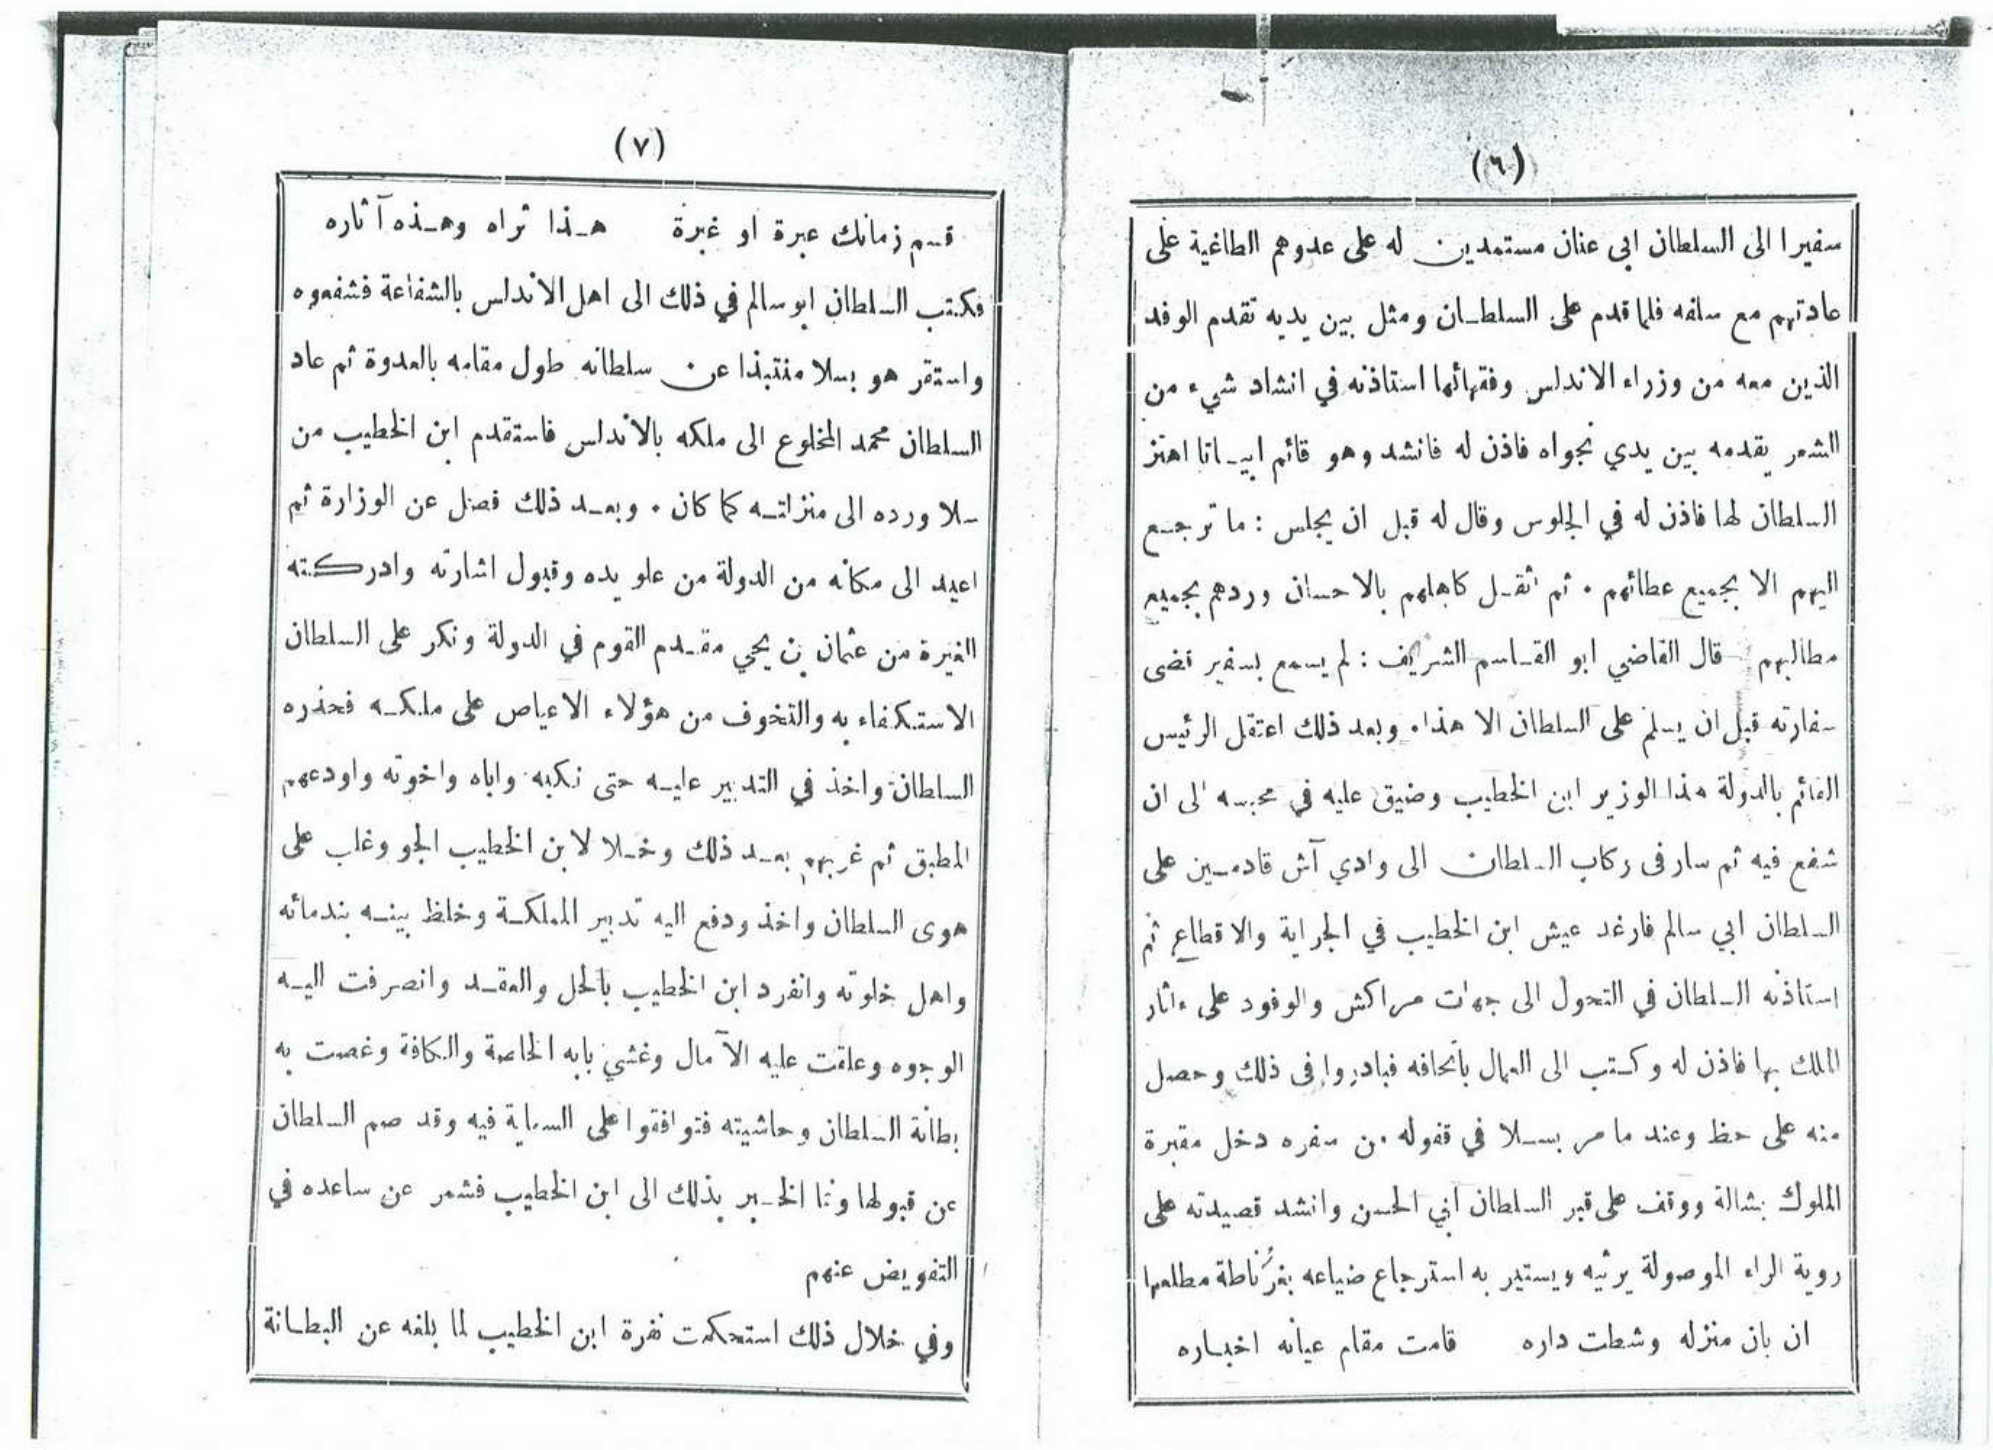 (٦)
سفيرا الى السلطان ابى عنان مستمدين له على عدوهم الطاغية على
عادتهم مع سلفه فلما قدم على السلطان ومثل بين يديه تقدم الوفد
الذين معه من وزراء الاندلس وفقهائها استاذنه في انشاد شيء من
الشعر يقدمه بين يدي نجواه فاذن له فانشد وهو قائم ابياتا اهتز
السلطان لها فاذن له في الجلوس وقال له قبل ان يجلس : ما ترجع
اليهم الا بجميع عطائهم . ثم اثقل كاهلهم بالاحسان وردهم بجميع
مطالبهم قال القاضي ابو القاسم الشريف : لم يسمع بسفير قضى
سفارته قبل ان يسلم على السلطان الا هذا . وبعد ذلك اعتقل الرئيس
القائم بالدولة هذا الوزير ابن الخطيب وضيق عليه في محبسه الى ان
شفع فيه ثم سار فى ركاب السلطان الى وادي آش قادمين على
السلطان ابي سالم فارغد عيش ابن الخطيب في الجراية والاقطاع ثم
استاذنه السلطان في التحول الى جهات مراكش والوفود على ءاثار
الملك بها فاذن له وكتب الى العمال باتحافه فبادروا فى ذلك وحصل
منه على حظ وعند ما مر بسلا في قفوله من سفره دخل مقبرة
الملوك بشالة ووقف على قبر السلطان ابي الحسن وانشد قصيدته على
روية الراء الموصولة يرثيه ويستدير به استرجاع ضياعه بغرناطة مطلعها
ان بان منزله وشطت داره قامت مقام عيانه اخباره
(٧)
قسم زمانك عبرة او غبرة هذا ثراه وهذه آثاره
فكتب السلطان ابو سالم في ذلك الى اهل الاندلس بالشفاعة فشفعوه
واستقر هو بسلا منتبذا عن سلطانه طول مقامه بالعدوة ثم عاد
السلطان محمد المخلوع الى ملكه بالاندلس فاستقدم ابن الخطيب من
سلا ورده الى منزلته كما كان . وبعد ذلك فصل عن الوزارة ثم
اعيد الى مكانه من الدولة من علو يده وقبول اشارته وادركته
الغيرة من عثمان بن يحي مقدم القوم في الدولة ونكر على السلطان
الاستكفاء به والتخوف من هؤلاء الاعياص على ملكه فحذره
السلطان واخذ في التدبير عليه حتى نكبه واباه واخوته واودعهم
المطبق ثم غربهم بعد ذلك وخلا لابن الخطيب الجو وغلب على
هوى السلطان واخذ ودفع اليه تدبير المملكة وخلط بينه بندمائه
واهل خلوته وانفرد ابن الخطيب بالحل والعقد وانصرفت اليه
الوجوه وعلقت عليه الآمال وغشي بابه الخاصة والكافة وغصت به
بطانة السلطان وحاشيته فتوافقوا على السعاية فيه وقد صم السلطان
عن قبولها ونما الخبر بذلك الى ابن الخطيب فشمر عن ساعده في
التفويض عنهم
وفي خلال ذلك استحكمت نفرة ابن الخطيب لما بلغه عن البطانة